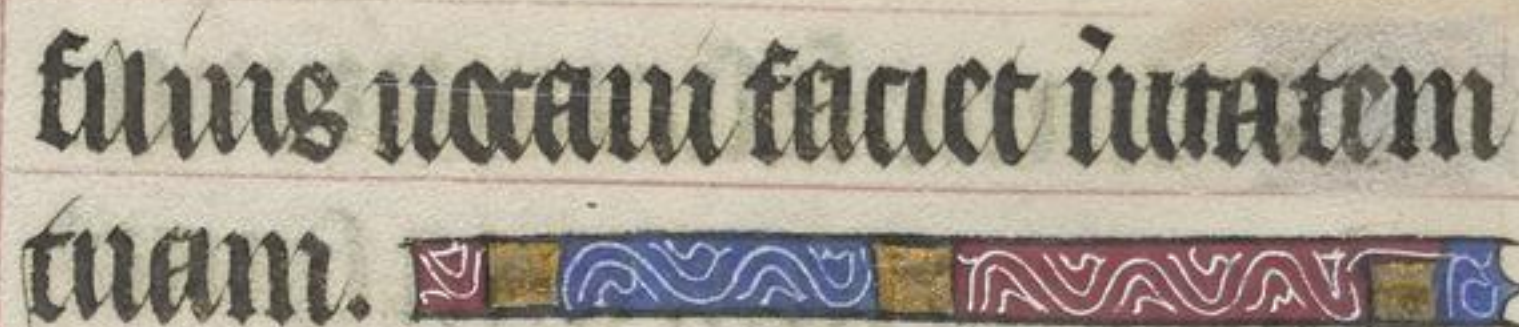 filiis notam faciet u̅itatem
tuam.